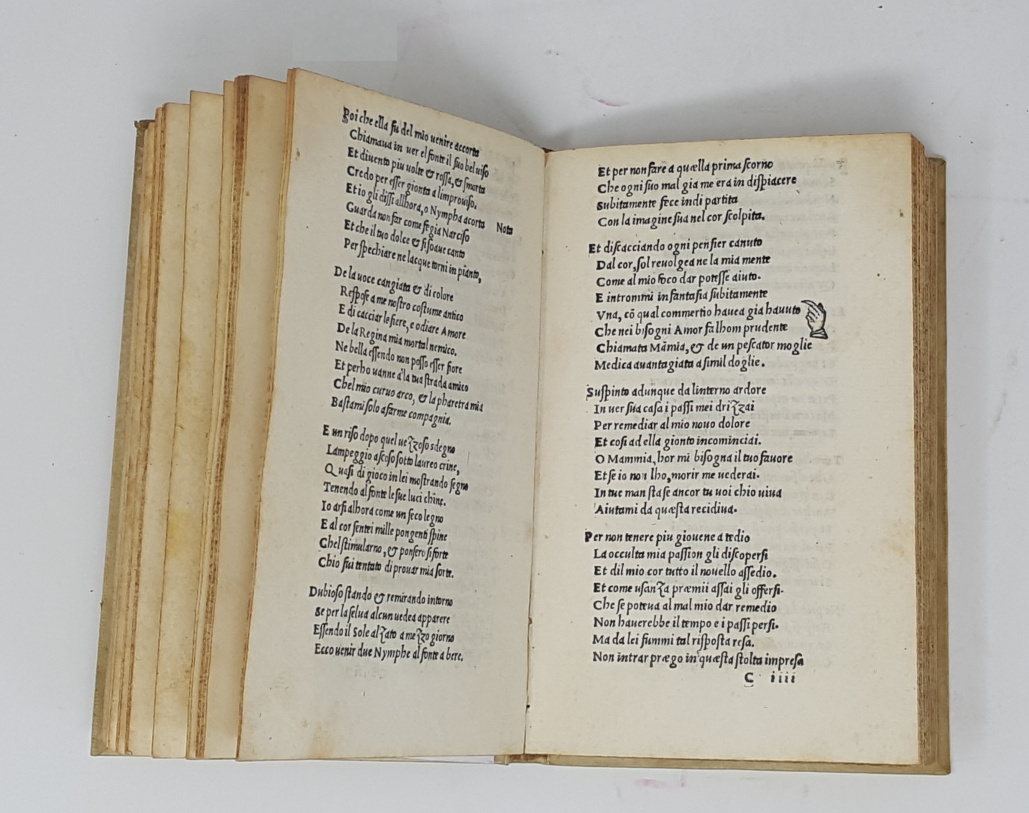 Poi che ella fu del mio uenire accorta
Chiamaua in uer el fonte il suo bel uiso
Et diuento piu uolte & rossa, & smorta
Credo per esser gionta a limprouiso.
Et io gli dissi allhora, o Nympha acorta Nota
Guarda non far come fe gia Narciso
Et che il tuo dolce & si soaue canto
Per spechiare ne lacque torni in pianto,
De la uoce cangiata & di colore
Respose a me nostro costume antico
E di cacciar le fiere, e odiare Amore
De la Regina mia mortal nemico.
Ne bella essendo non posso esser fiore
Et perho uanne a la tua strada amico
Chel mio curuo arco, & la pharetra mia
Bastami solo a farme compagnia.
E un riso dopo quel uezzoso sdegno
Lampeggio ascoso sotto laureo crine,
Quasi di gioco in lei mostrando segno
Tenendo al fonte le sue luci chine.
Io arsi alhora come un seco legno
E al cor sentei mille pongenti spine
Chel stimularno, & ponsero si forte
Chio fui tentato di prouar mia sorte.
Dubioso stando & remirando intorno
Se per la selua alcun uedea apparere
Essendo il Sole alzato a mezo giorno
Ecco uenir due Nymphe al fonte a bere.
Et per non fare a quælla prima scorno
Che ogni suo mal gia me era in dispiacere
Subitamente fece indi partita
Con la imagine sua nel cor scolpita.
Et discacciando ogni pensier canuto
Dal cor, sol reuolgea ne la mia mente
Come al mio foco dar potesse aiuto.
E introm̄mi in fantasia subitamente
Vna, cō qual commertio hauea gia hauuto
Che nei bisogni Amor fa lhom prudente
Chiamata Mām̄ia, & de un pescator moglie
Medica auantagiata a simil doglie.
Suspinto adunque da linterno ardore
In uer sua casa i passi mei drizzai
Per remediar al mio nouo dolore
Et cosi ad ella gionto incominciai.
O Mammia, hor mi bisogna il tuo fauore
Et se io non lho, morir me uederai.
In tue man sta se ancor tu uoi chio uiua
Aiutami da quæsta recidiua.
Per non tenere piu giouene a tedio
La occulta mia passion gli discopersi
Et dil mio cor tutto il nouello assedio.
Et come usanza præmii assai gli offersi.
Che se poteua al mal mio dar remedio
Non hauerebbe il tempo e i passi persi.
Ma da lei fummi tal risposta resa.
Non intrar prægo in quæsta stolta impresa
C iiii